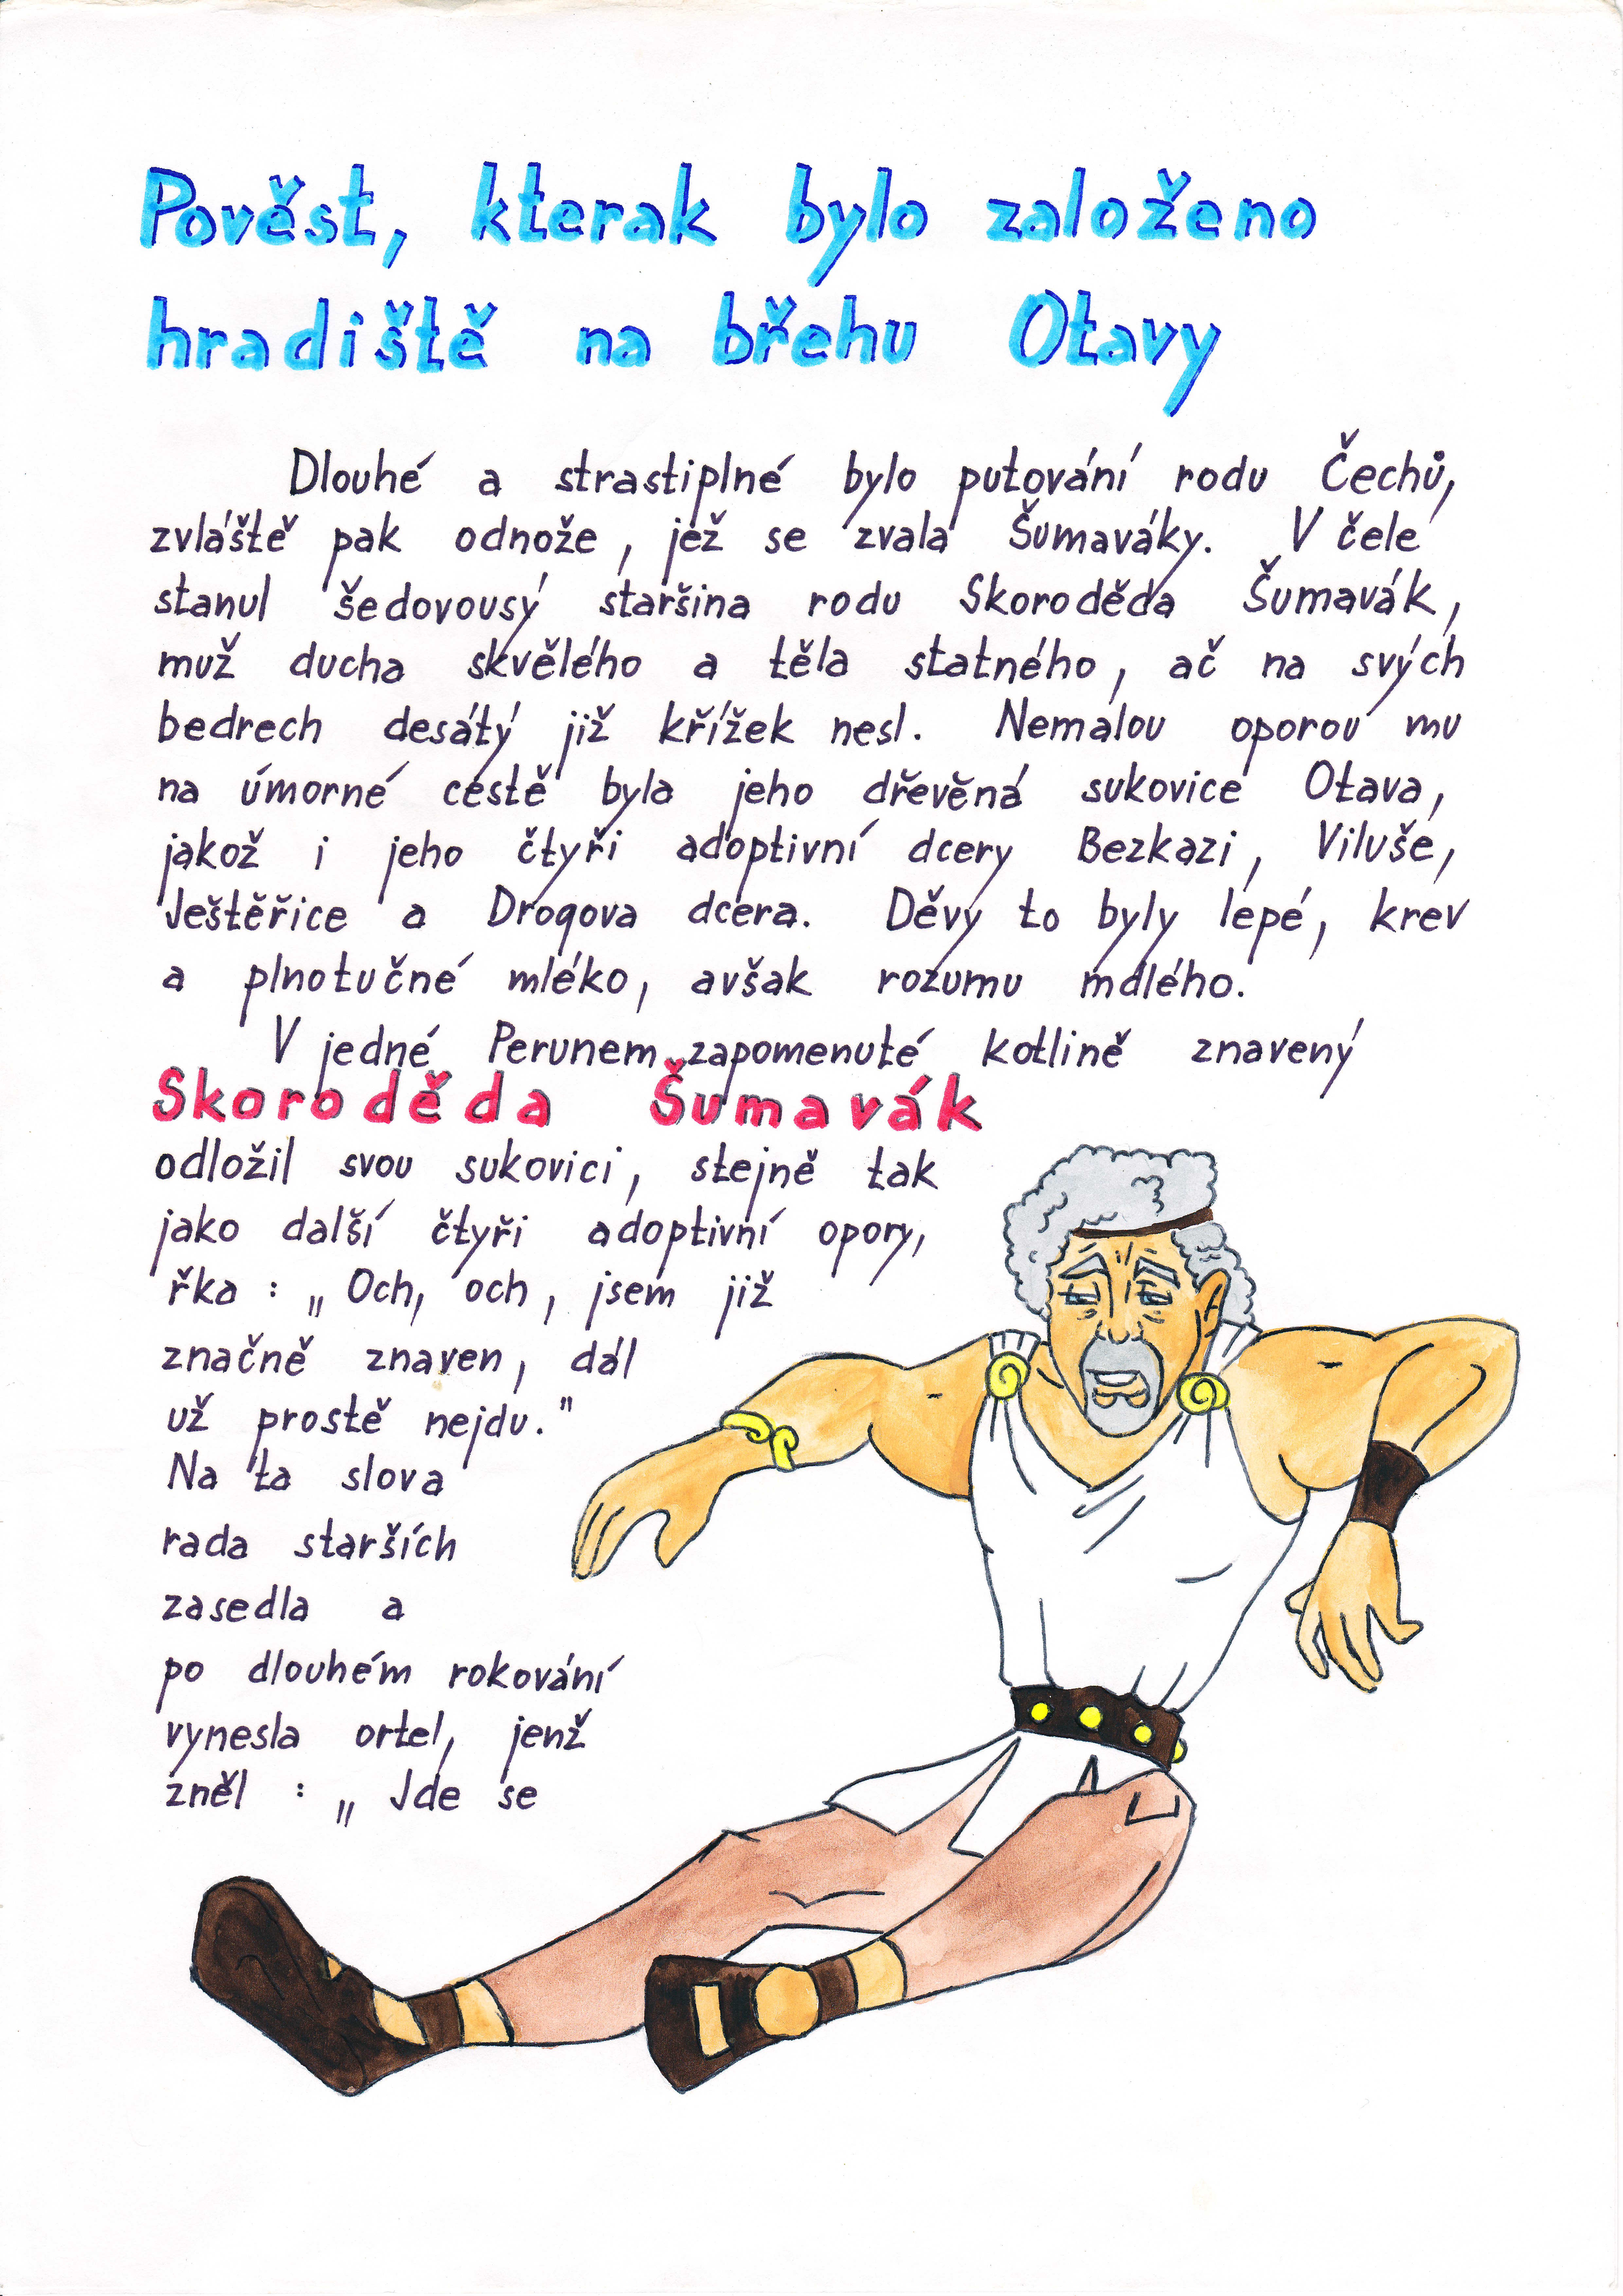 Pověst, kterak bylo založeno
hradiště na břehu Otavy
Dlouhé a strastiplné bylo putování rodu Čechů,
zvláště pak odnože, jež se zvala Šumaváky. V čele
stanul šedovousý staršina rodu Skoroděda Šumavák,
muž ducha skvělého a těla statného, ač na svých
bedrech desátý již křížek nesl. Nemalou oporou mu
na úmorné cestě byla jeho dřevěná sukovice Otava,
jakož i jeho čtyři adoptivní dcery Bezkazi, Viluše,
Ještěřice a Drogova dcera. Děvy to byly lepé, krev
a plnotučné mléko, avšak rozumu mdlého.
V jedné Perunem zapomenuté kotlině znavený
Skoroděda Šumavák
odložil svou sukovici, stejně tak
jako další čtyři adoptivní opory,
řka : „Och, och, jsem již
značně znaven, dál
už prostě nejdu."
Na ta slova
rada starších
zasedla a
po dlouhém rokování
vynesla ortel, jenž
zněl : „Jde se